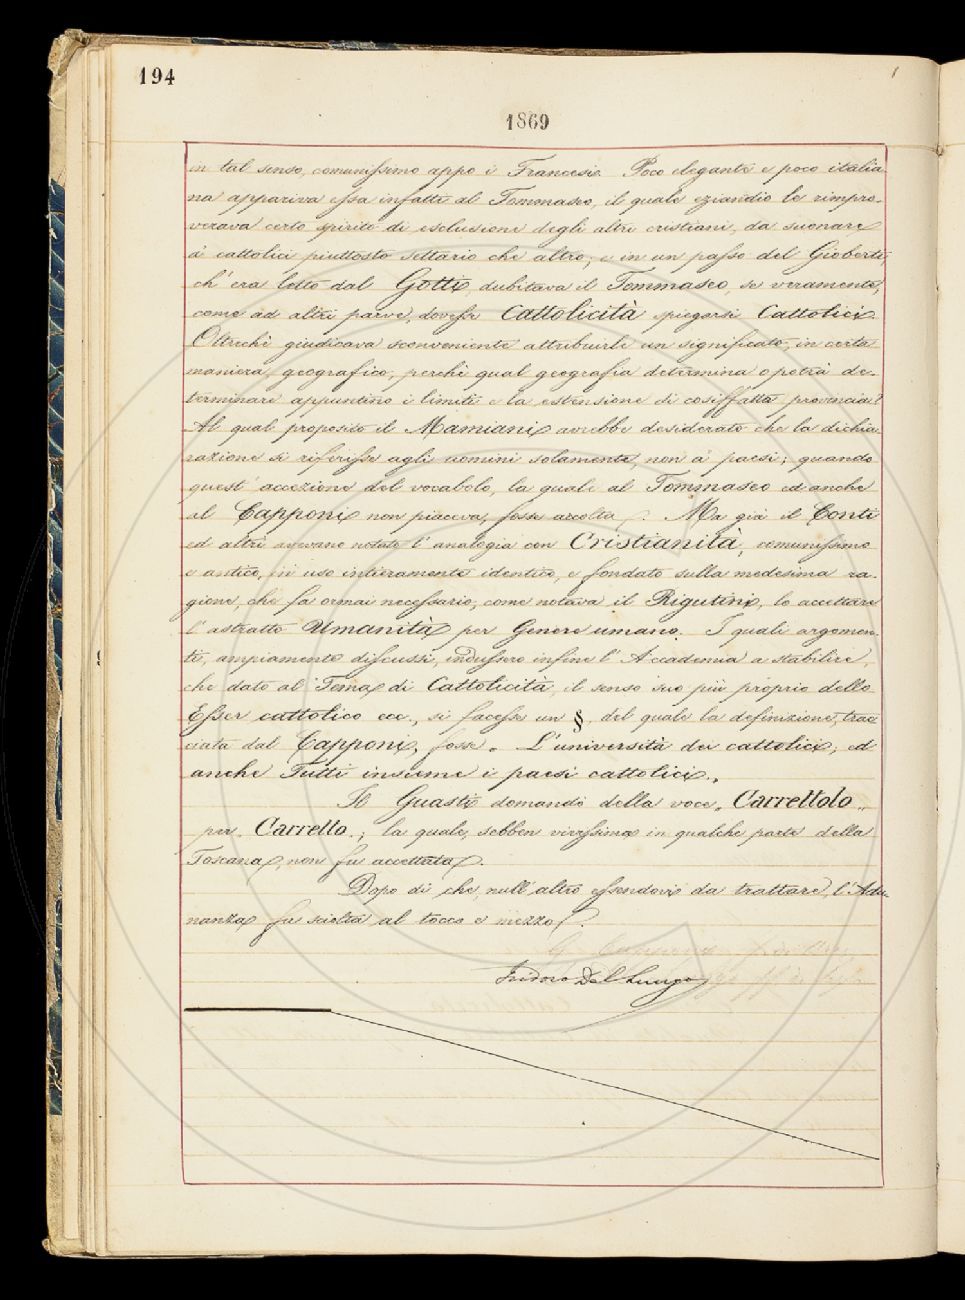 194
1869
in tal senso, comunissimo appo i Francesi. Poco elegante e poco italia-
na appariva essa infatti al Tommaseo, il quale eziandio le rimpro-
verava certo spirito di esclusione degli altri cristiani, da suonare
a' cattolici piuttosto settario che altro; e in un passo del Gioberti,
ch' era letto dal Gotti, dubitava il Tommaseo, se veramente,
come ad altri parve, dovesse Cattolicità spiegarsi Cattolici.
Oltrechè giudicava sconveniente attribuirle un significato, in certa
maniera, geografico; perchè qual geografia determina o potrà de-
terminare appuntino i limiti e la estensione di cosiffatta provincia?
Al qual proposito il Mamiani avrebbe desiderato che la dichia-
razione si riferisse agli uomini solamente, non a' paesi; quando
quest' accezione del vocabolo, la quale al Tommaseo ed anche
al Capponi non piaceva, fosse accolta. Ma già il Conti
ed altri avevano notato l' analogia con Cristianità, comunissimo
e antico, in uso intieramente identico, e fondato sulla medesima ra-
gione, che fa ormai necessario, come notava il Rigutini, lo accettare
l' astratto Umanità per Genere umano. I quali argomen-
ti, ampiamente discussi, indussero infine l' Accademia a stabilire,
che dato al Tema di Cattolicità, il senso suo più proprio dello
Esser cattolico ecc., si facesse un §, del quale la definizione, trac-
ciata dal Capponi, fosse „ L'università dei cattolici; ed
anche Tutti insieme i paesi cattolici „
Il Guasti domandò della voce „ Carrettolo „
per „ Carretto „; la quale, sebben vivissima in qualche parte della
Toscana, non fu accettata.
Dopo di che, null' altro essendovi da trattare, l' Adu-
nanza fu sciolta al tocco e mezzo.
Isidoro Del Lungo